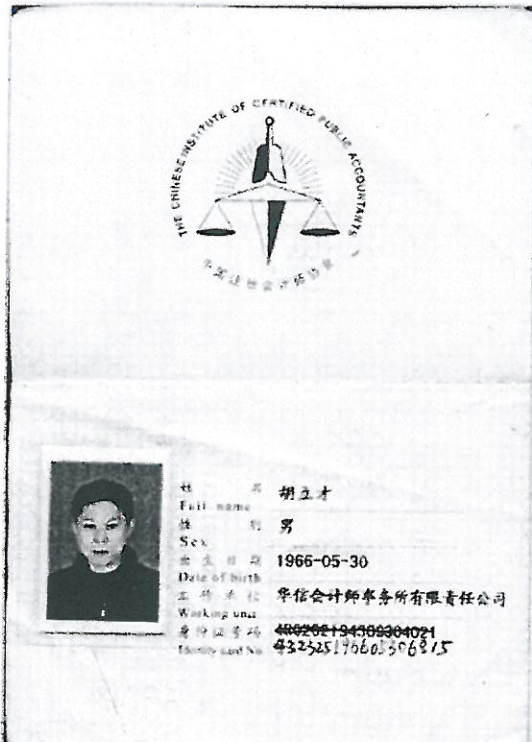 THE CHINESE INSTITUTE OF CERTIFIED PUBLIC ACCOUNTANTS
中国注册会计师协会
姓 名 胡立才
Full name
性 别 男
Sex
出生日期 1966-05-30
Date of birth
工作单位 华信会计师事务所有限责任公司
Working unit
身份证号码
Identity card No. 432325196605306815